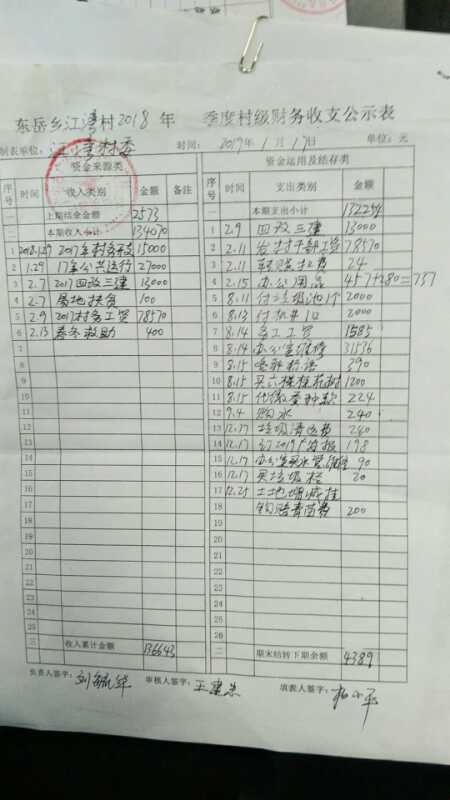 东岳乡江湾村2018年 季度村级财务收支公示表
制表单位: 江湾村委 时间: 2019年1月17日 单位:元
资金来源类 资金运用及结存类
序号 时间 收入类别 金额 备注 序号 时间 支出类别 金额
一 上期结余金额 2573 一 本期支出小计 132254
二 本期收入小计 134070 1 2.9 四改三建 13000
1 2018.1.29 2017年村务 15000 2 2.11 发村干部工资 78570
2 1.29 17年公共运行 27000 3 2.11 费 24
3 2.7 2017四改三建 13000 4 2.15 办公用品 457+280=737
4 2.7 易地扶贫 100 5 8.11 付垃圾池1个 2000
5 2.9 2017村务工资 78570 6 8.13 付机井 2000
6 2.13 春冬救助 400 7 8.14 务工工资 1585
7 8 8.14 办公室维修 31536
8 9 8.15 标语 390
9 10 8.15 买六棵桂花树 1200
10 11 8.15 代缴麦种款 224
11 12 9.4 购水 240
12 13 12.17 垃圾清运费 240
13 14 12.17 订2019广 报 198
14 15 12.17 办公室买水管 90
15 16 12.17 买垃圾 20
16 17 12.25 土地增减挂
17 18 钩赔青苗费 200
18
19
20
21
22
23
24
25
三 收入累计金额 136643 二 期末结转下期金额 4389
负责人签字: 刘 华 审核人签字: 王建 填表人签字: 杨小平